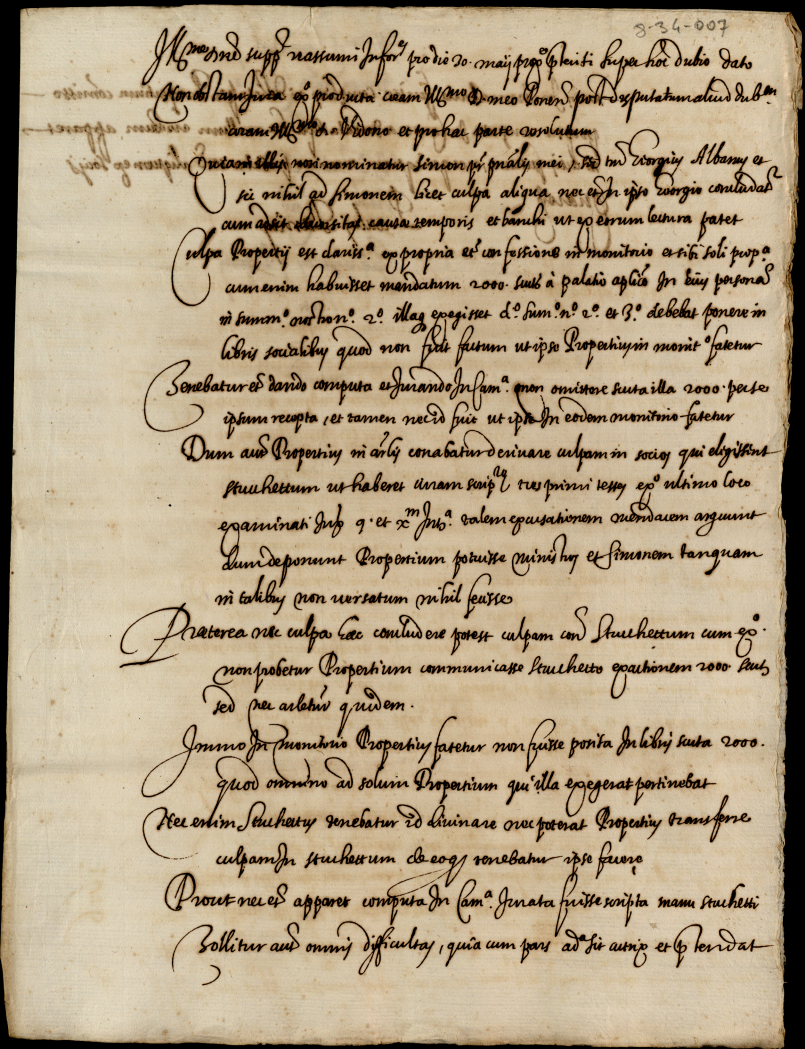 8-34-007
Ill.me D.ne supp.r assumi Infor.o pro die 20. maij prox.o pteriti super hoc dubio dato
Non obstant Iura ex.o producta coram Ill.mo D. meo Ponen. post disputatum aliud dub.m
coram Ill.mo et pro hac parte resolutum
Quia in illis non nominatur Simon pr. pnalis mei, sed tm. Georgius Albanus et
sic nihil ad Simonem licet culpa aliqua nec et. In ipso Georgio concludat.r
cum adsit diversitas causa temporis et banchi ut ex eorum lectura patet
Culpa Propertij est clariss.a ex propria et. confessione in monitorio et sibi soli prop.a
cum enim habuisset mandatum 2000. scut. à palatio aplico In eius persona
in summ.o nostro n.o 2.o illaq exegisset d.o sum.o n.o 2.o et 3.o debebat ponere in
libris socialibus quod non fuit factum ut ipse Propertius in monit.o fatetur
Tenebatur et. dando computa et Iurando In Cam.a non omittere scuta illa 2000. per se
ipsum recepta, et tamen nec id fecit ut ipse In eodem monitorio fatetur
Dum aut. Propertius in artis conabatur derivare culpam in socios qui eligissent
Stuchettum ut haberet curam script.rq tres primi testes ex.o ultimo loco
examinati Sup. 9. et x.m Int.a talem excusationem mendacem arguunt
dum deponunt Propertium potuisse ministros et Simonem tanquam
in talibus non versatum nihil scivisse
Præterea nec culpa hæc concludere potest culpam con. Stuchettum cum ex.o
non probetur Propertium communicasse Stuchetto exactionem 2000. scut.
sed nec arletur quidem.
Immo In monitorio Propertius fatetur non fuisse posita In libris scuta 2000.
quod omnino ad solum Propertium qui illa exegerat pertinebat
Nec enim Stuchettus tenebatur id divinare nec poterat Propertius transferre
culpam In Stuchettum de eo q tenebatur ipse facere
Prout nec et. apparet computa In Cam.a Iurata fuisse scripta manu Stuchetti
Tollitur aut. omnis difficultas, quia cum pars ad.a sit actrix et ptendat